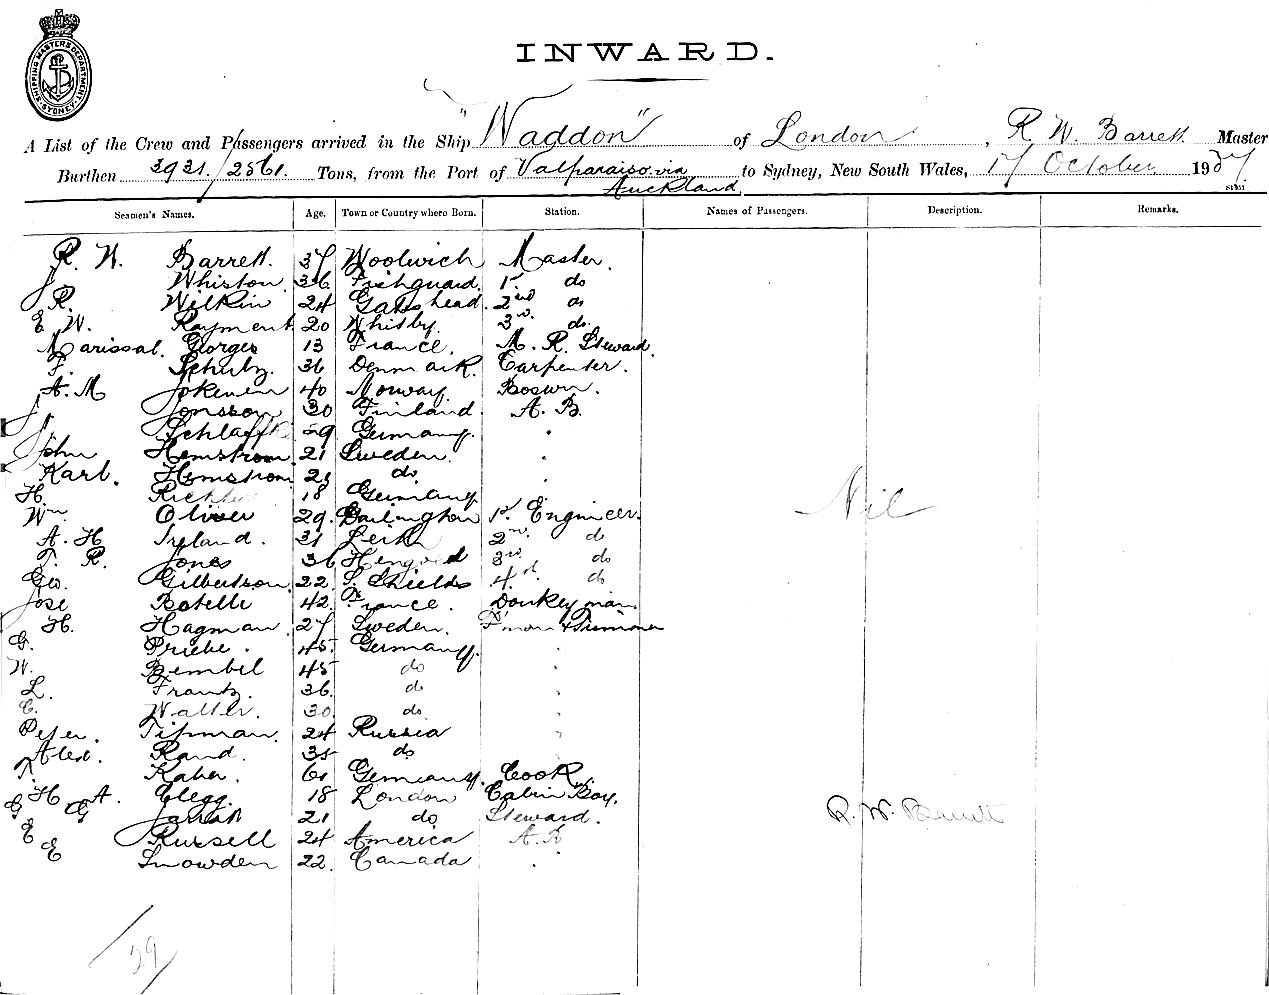 SHIPPING MASTERS DEPARTMENT SYDNEY
INWARD.
A List of the Crew and Passengers arrived in the Ship "Waddon" of London, R. W. Barrett Master
Burthen 3931/2561. Tons, from the Port of Valparaiso via Auckland to Sydney, New South Wales, 17 October 1907.
Seamen's Names. Age. Town or Country where Born. Station. Names of Passengers. Description. Remarks.
R. W. Barrett. 37 Woolwich Master.
J. Whiston. 36 Fishguard. 1st do
R. Wilkin 24 Gateshead. 2nd do
E W. Rayment 20 Whitby. 3rd do.
Marissal. Georges 13 France. M. R. Steward.
F. Schultz. 36 Denmark. Carpenter.
A. M Jokinen 40 Norway. Boswn.
J. Jonsson 30 Finland. A. B.
J. Schlaffk 29 Germany. "
John Hemstrom 21 Sweden. "
Karl. Hemstrom 21 do. "
H. Richter 18 Germany "
Wm Oliver 29. Darlington 1st Engineer.
A. H Ireland. 31 Leith 2nd do
T. R. Jones 36 Hengoed 3rd do
Geo. Gilbertson. 22 S. Shields 4th do
Jose Botelli 42. France. Donkeyman.
H. Hagman. 27 Sweden. F'man & Trimmer
G. Priebe. 45. Germany. "
W. Bembil 45 do "
L. Frantz. 36. do "
C. Walter. 30. do "
Peter. Tipman. 24 Russia "
Alex. Rand. 35 do
T. Kaha. 61 Germany. Cook.
H. A. Clegg. 18 London Cabin Boy.
G G Jarrat 21 do Steward.
E Russell 24 America A. B
E Snowden 22. Canada "
Nil
R. W. Barrett
29